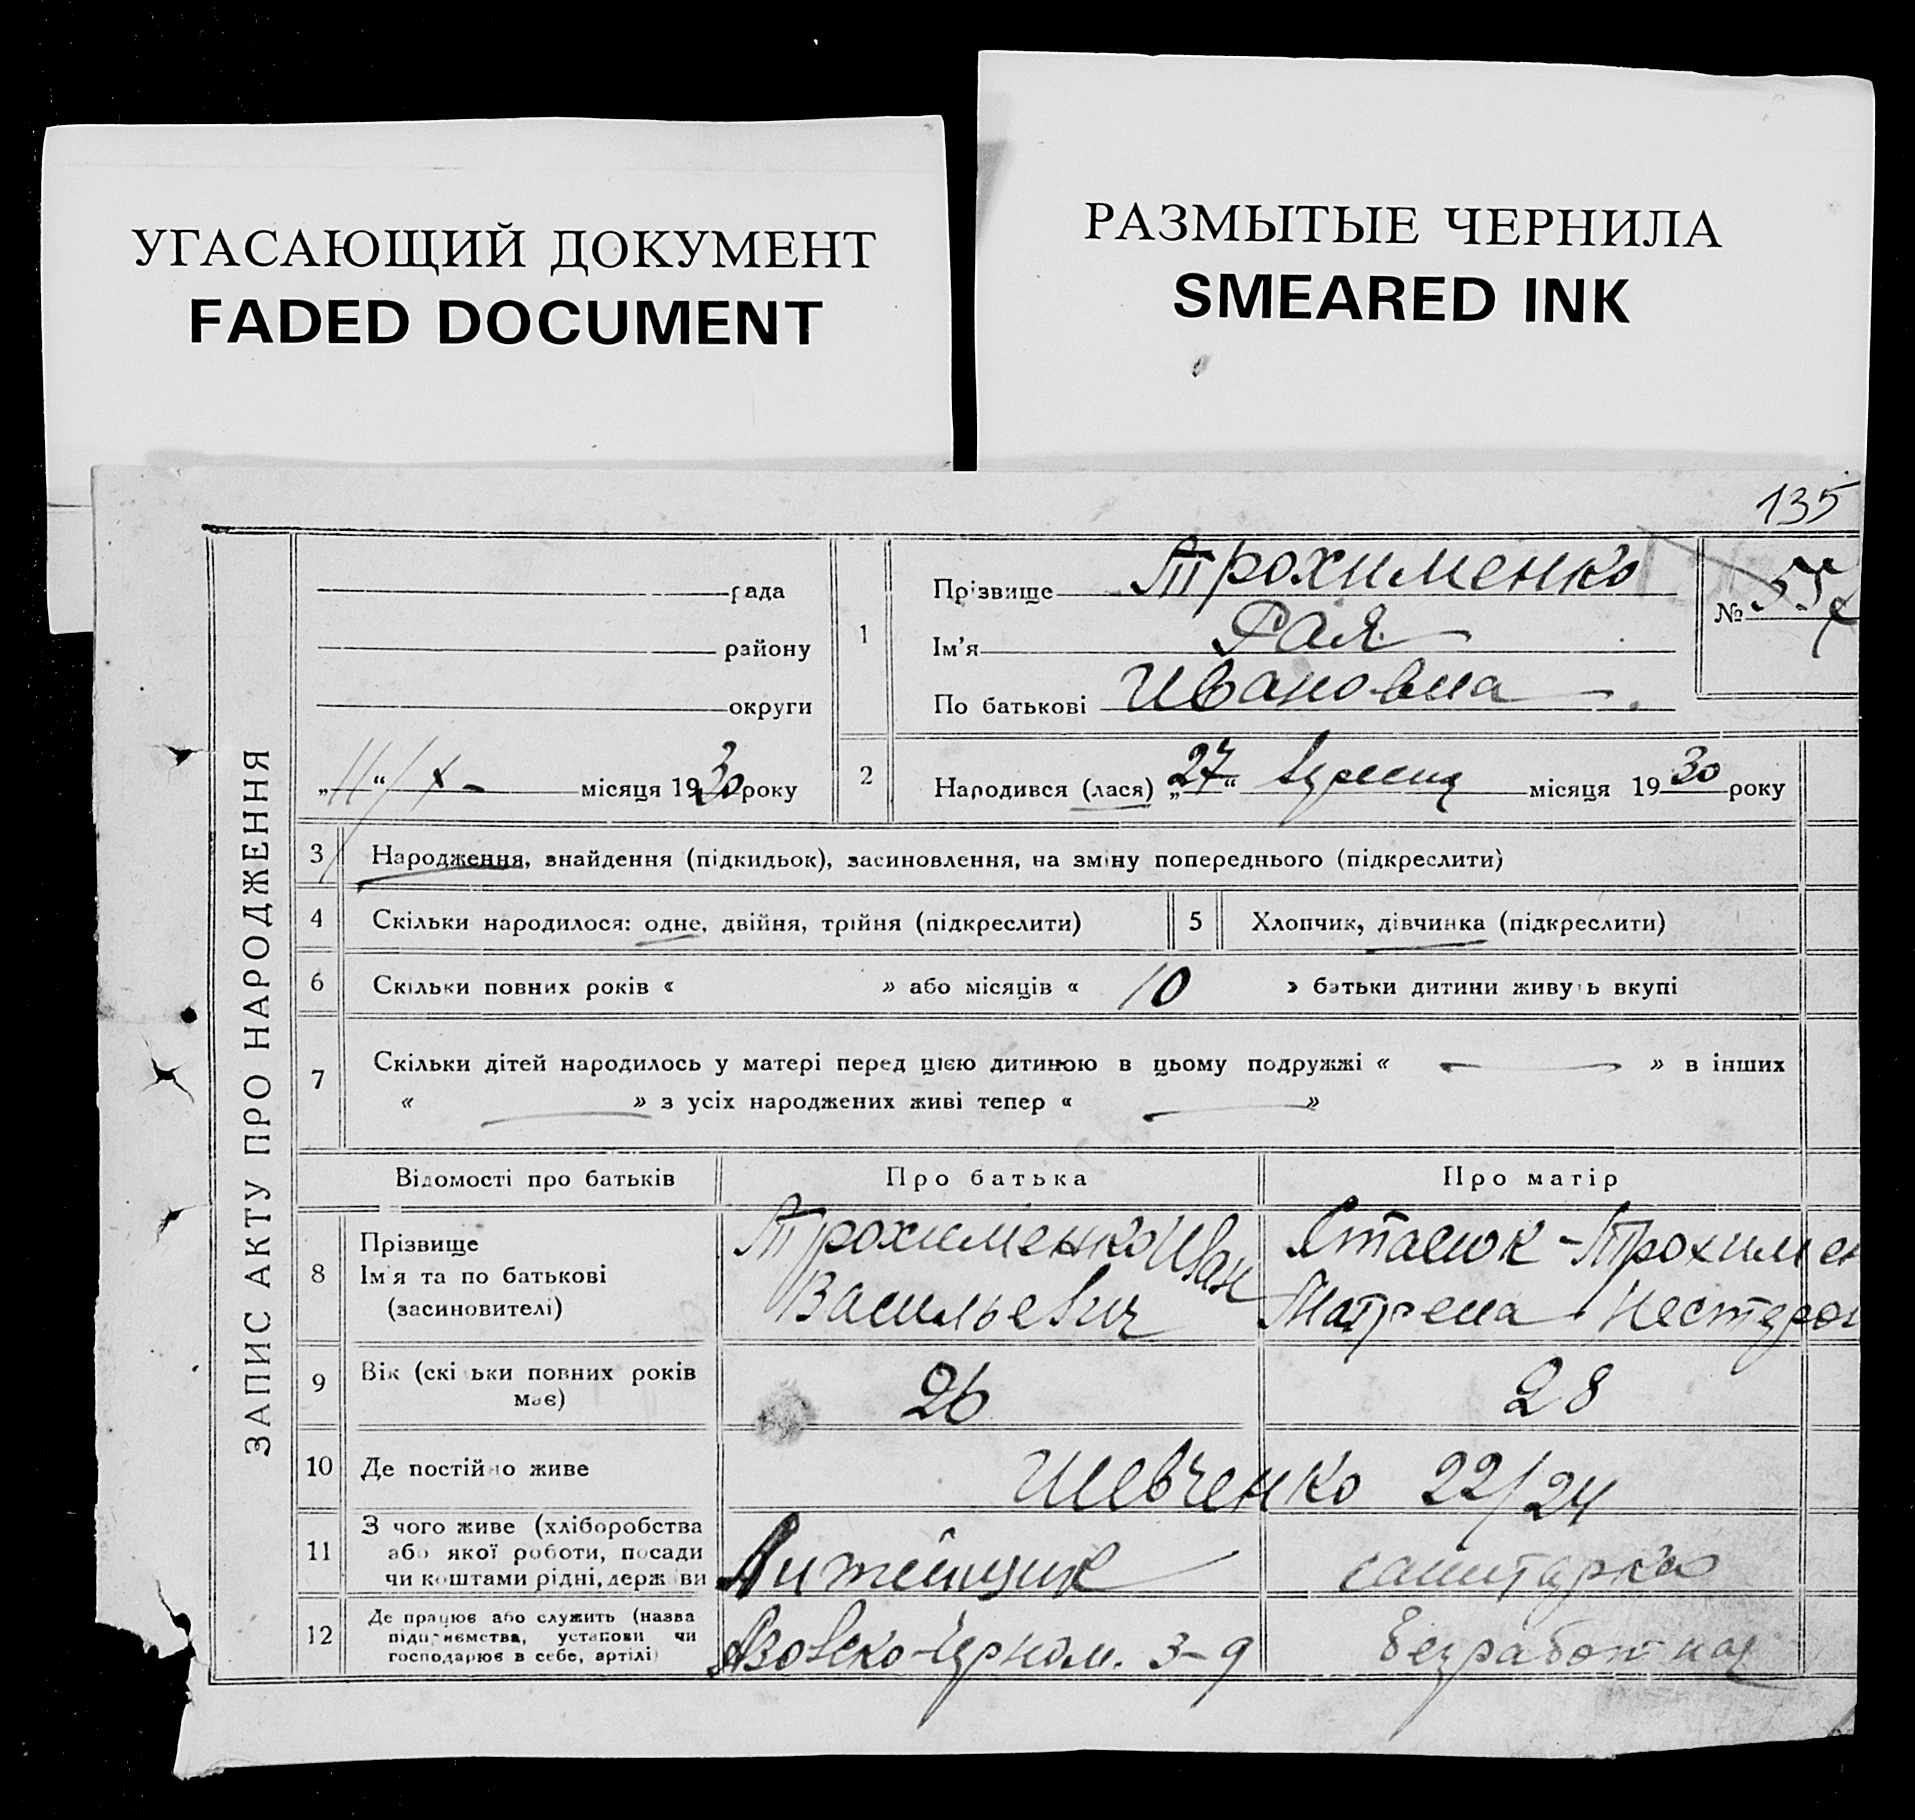 УГАСАЮЩИЙ ДОКУМЕНТ
FADED DOCUMENT
РАЗМЫТЫЕ ЧЕРНИЛА
SMEARED INK
135
ЗАПИС АКТУ ПРО НАРОДЖЕННЯ
рада
району
округи
„11“ X - місяця 1930 року
1
Прізвище Трохименко
Ім'я Рая
По батькові Ивановна
№ 55
2 Народився (лася) „27“ вересня місяця 1930 року
3 Народження, знайдення (підкидьок), засиновлення, на зміну попереднього (підкреслити)
4 Скільки народилося: одне, двійня, трійня (підкреслити) 5 Хлопчик, дівчинка (підкреслити)
6 Скільки повних років « » або місяців « 10 » батьки дитини живуть вкупі
7 Скільки дітей народилось у матері перед цією дитиною в цьому подружжі « — » в інших
« — » з усіх народжених живі тепер « — »
Відомості про батьків Про батька Про матір
8 Прізвище
Ім'я та по батькові
(засиновителі)
Трохименко Иван
Васильевич
Стасюк-Трохимен
Матрена Нестеров
9 Вік (скільки повних років
має)
26 28
10 Де постійно живе Шевченко 22/24
11 З чого живе (хліборобства
або якої роботи, посади
чи коштами рідні, держави
Литейщик санитарка
12 Де працює або служить (назва
підприємства, установи чи
господарює в себе, артілі)
Азовско-Черном. З-д безработная